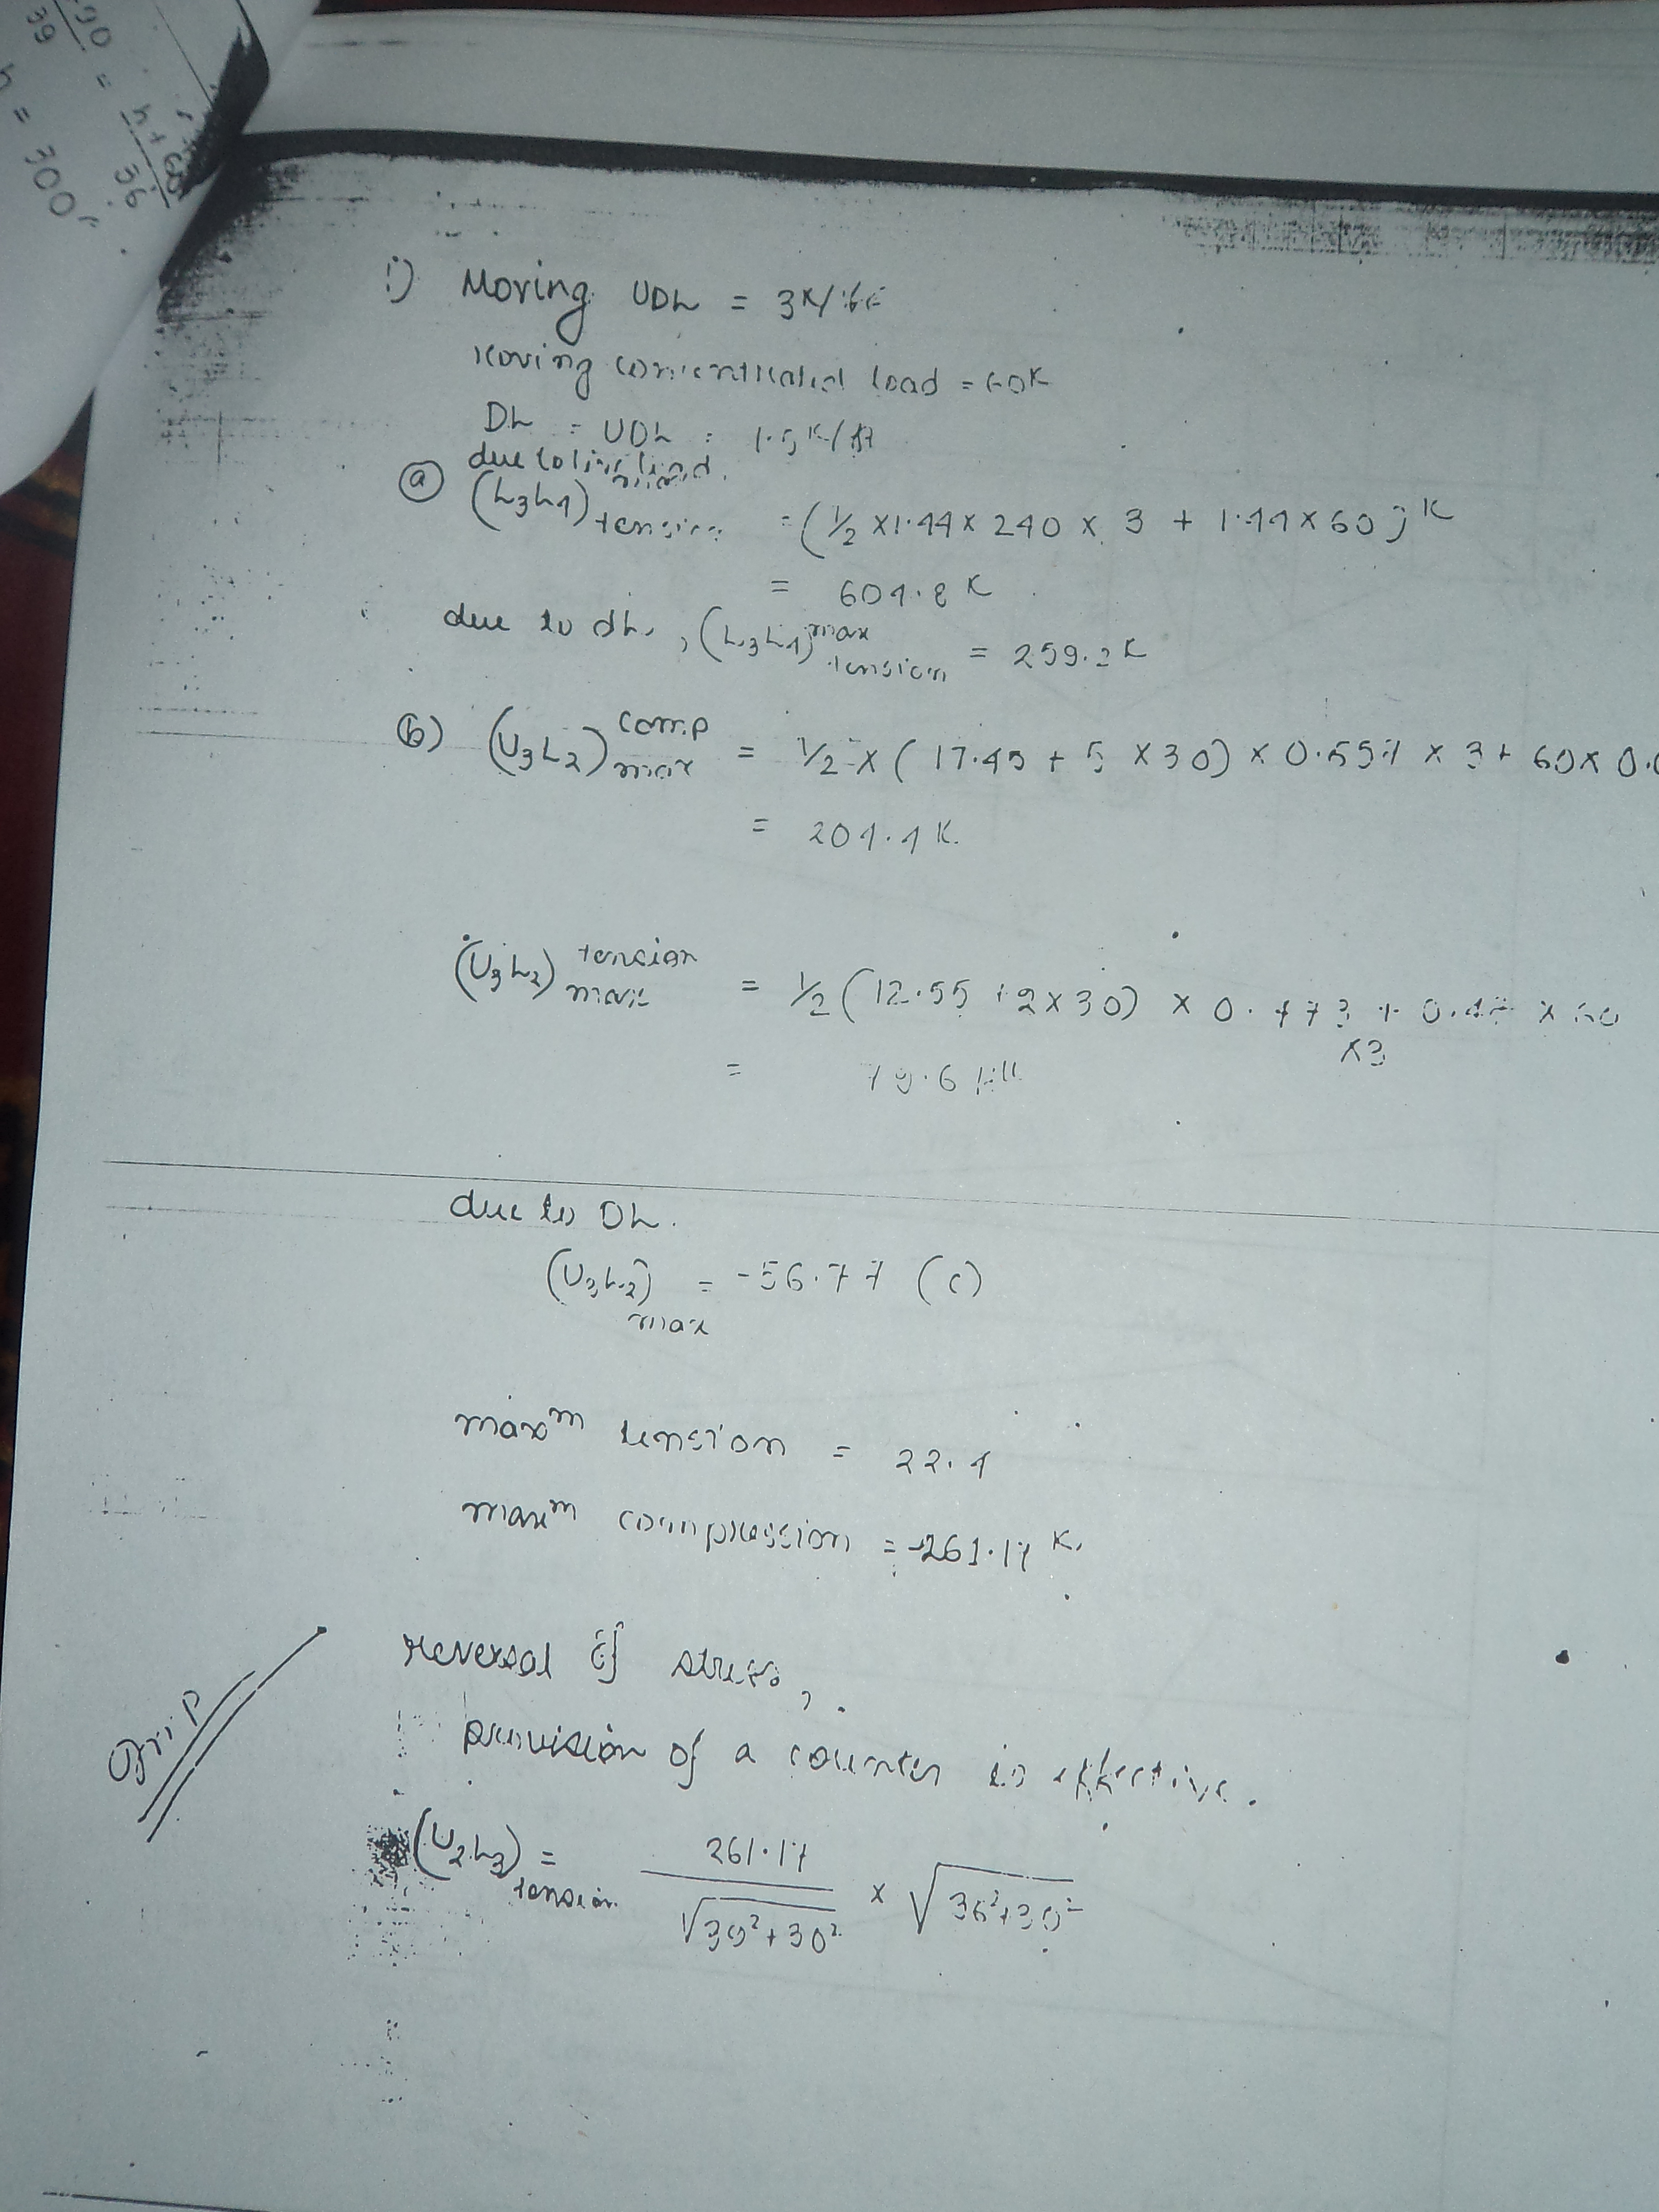 30/39 = h+60/36
h = 300'
i) Moving UDL = 3K/ft
Moving concentrated load = 60K
DL = UDL = 1.5 K/ft
due to live load,
ⓐ (L3L4) max tension = (1/2 x 1.44 x 240 x 3 + 1.44 x 60) K
= 604.8 K
due to dL, (L3L4) max tension = 259.2 K
ⓑ) (U3L2) comp max = 1/2 x ( 17.45 + 5 x 30) x 0.557 x 3 + 60 x 0.
= 204.4 K.
(U3L2) tension max = 1/2 (12.55 + 2x30) x 0.473 + 0.47 x 60
x3
= 79.6
due to DL.
(U3L2) max = -56.77 (c)
maxm tension = 22.4
maxm compression = -261.17 K.
reversal of stress,
provision of a counter is effective.
(U2L3) tension = 261.17/√39²+30² x √36²+30²